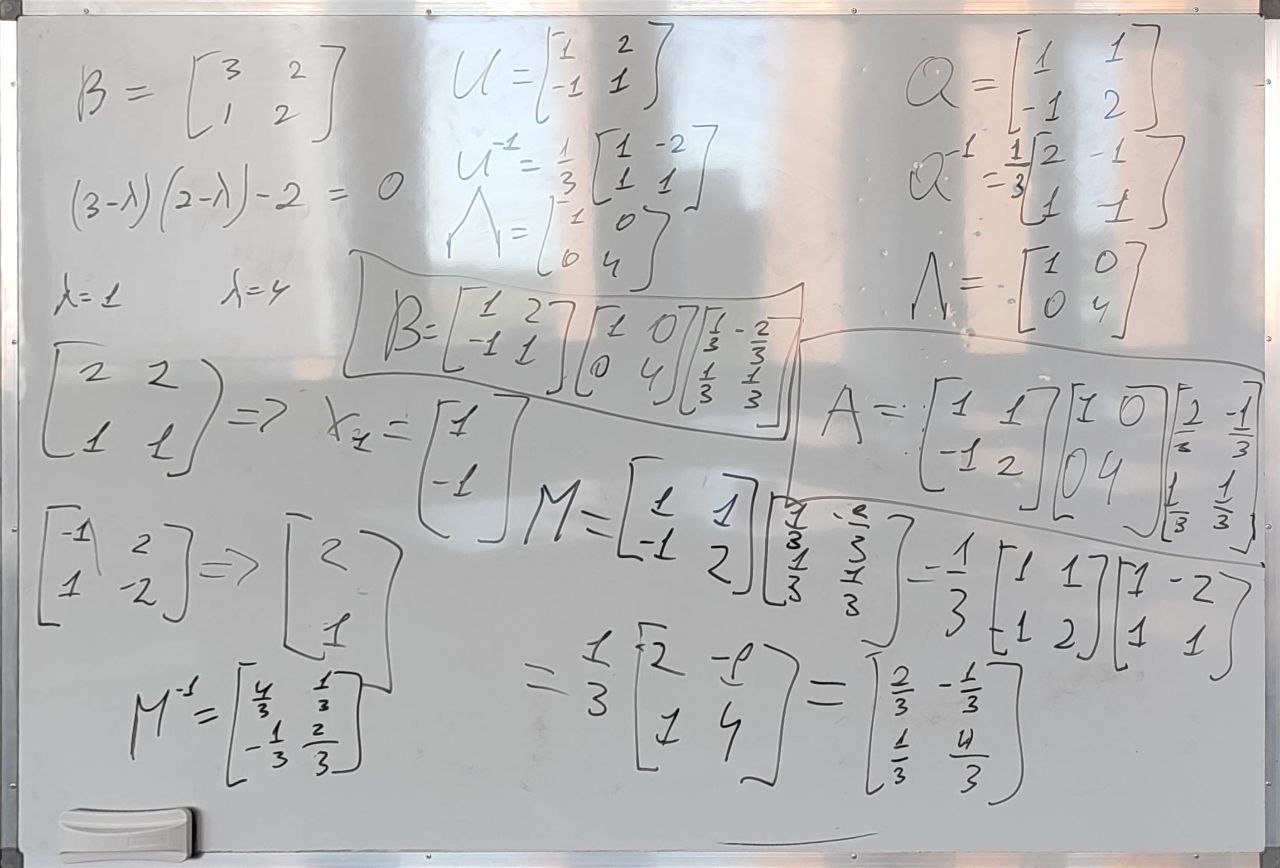 B = [3 2; 1 2]
(3-λ)(2-λ)-2 = 0
λ=1 λ=4
[2 2; 1 1] => X₁ = [1; -1]
[-1 2; 1 -2] => [2; 1]
M⁻¹ = [4/3 1/3; -1/3 2/3]
U = [1 2; -1 1]
U⁻¹ = 1/3 [1 -2; 1 1]
Λ = [1 0; 0 4]
B = [1 2; -1 1] [1 0; 0 4] [1/3 -2/3; 1/3 1/3]
Q = [1 1; -1 2]
Q⁻¹ = 1/3 [2 -1; 1 1]
Λ = [1 0; 0 4]
A = [1 1; -1 2] [1 0; 0 4] [2/3 -1/3; 1/3 1/3]
M = [1 1; -1 2] [1/3 -2/3; 1/3 1/3] = 1/3 [1 1; -1 2] [1 -2; 1 1]
= 1/3 [2 -1; 1 4] = [2/3 -1/3; 1/3 4/3]